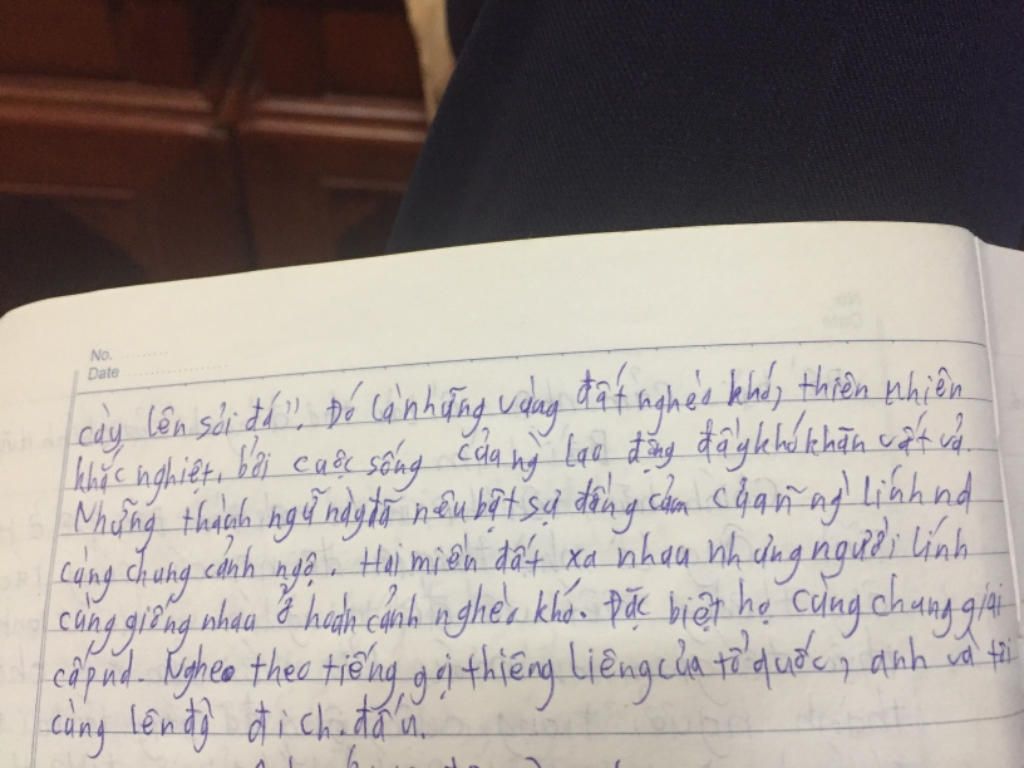 No. ..........
Date ....................
cày lên sỏi đá". Đó là những vùng đất nghèo khó, thiên nhiên
khắc nghiệt, bởi cuộc sống của ng lao động đầy khó khăn vất vả.
Những thành ngữ này đã nêu bật sự đồng cảm của n~ ng` lính nd
cùng chung cảnh ngộ. Hai miền đất xa nhau nhưng người lính
cùng giống nhau ở hoàn cảnh nghèo khó. Đặc biệt họ cùng chung giai
cấp nd. Nghe theo tiếng gọi thiêng liêng của tổ quốc, anh và tôi
cùng lên đg đi ch.đấu.